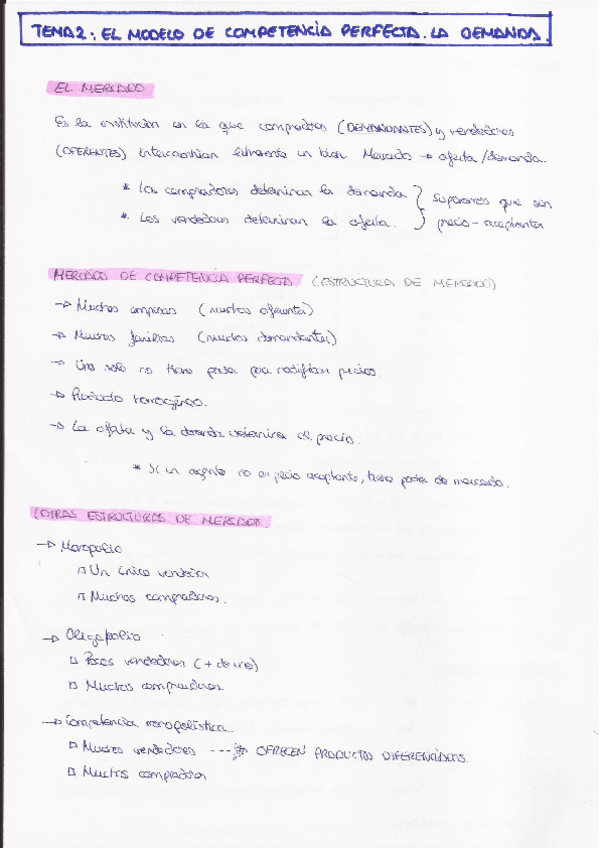 TEMA 2: EL MODELO DE COMPETENCIA PERFECTA. LA DEMANDA.
EL MERCADO
Es la institución en la que compradores (DEMANDANTES) y vendedores
(OFERENTES) intercambian un bien Mercado → oferta/demanda.
* Los compradores determinan la demanda. } Suponemos que son
* Los vendedores determinan la oferta. } precio-aceptantes
MERCADO DE COMPETENCIA PERFECTA (ESTRUCTURA DE MERCADO)
→ Muchas empresas (muchos oferentes)
→ Muchas familias (muchos demandantes)
→ Uno solo no tiene para modificar precios.
→ Producto homogéneo.
→ La oferta y la demanda determina el precio.
* Si un agente no es precio aceptante, tiene poder de mercado.
OTRAS ESTRUCTURAS DE MERCADO
→ Monopolio
□ Un único vendedor
□ Muchos compradores.
→ Oligopolio
□ Pocos vendedores (+ de uno)
□ Muchos compradores.
→ Competencia monopolística.
□ Muchos vendedores ---→ OFRECEN PRODUCTOS DIFERENCIADOS.
□ Muchos compradores